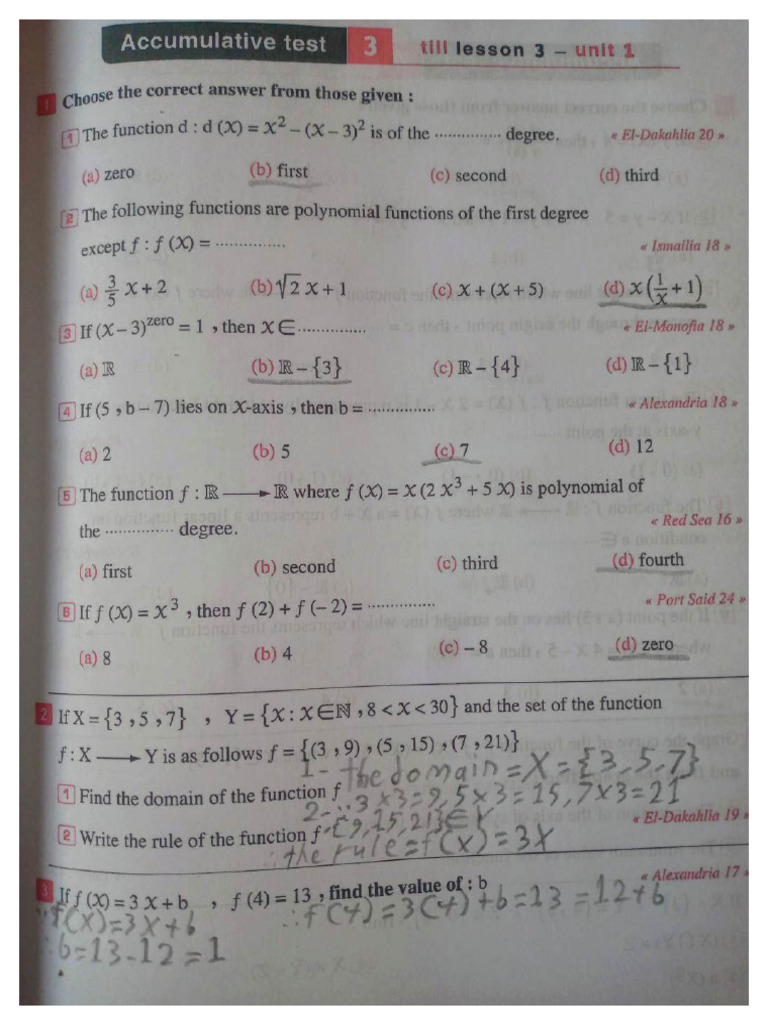 Accumulative test 3 till lesson 3 – unit 1
1 Choose the correct answer from those given :
1 The function d : d (X) = X² – (X – 3)² is of the ............... degree. « El-Dakahlia 20 »
(a) zero (b) first (c) second (d) third
2 The following functions are polynomial functions of the first degree
except f : f (X) = ............... « Ismailia 18 »
(a) 3/5 X + 2 (b) √2 X + 1 (c) X + (X + 5) (d) X (1/X + 1)
3 If (X – 3)^zero = 1 , then X ∈ ............... « El-Monofia 18 »
(a) ℝ (b) ℝ – {3} (c) ℝ – {4} (d) ℝ – {1}
4 If (5 , b – 7) lies on X-axis , then b = ............... « Alexandria 18 »
(a) 2 (b) 5 (c) 7 (d) 12
5 The function f : ℝ ⟶ ℝ where f (X) = X (2 X³ + 5 X) is polynomial of
the ............... degree. « Red Sea 16 »
(a) first (b) second (c) third (d) fourth
6 If f (X) = X³ , then f (2) + f (– 2) = ............... « Port Said 24 »
(a) 8 (b) 4 (c) – 8 (d) zero
2 If X = {3 , 5 , 7} , Y = {X : X ∈ ℕ , 8 < X < 30} and the set of the function
f : X ⟶ Y is as follows f = {(3 , 9) , (5 , 15) , (7 , 21)}
1- the domain = X = {3, 5, 7}
1 Find the domain of the function f
2- ∵ 3 × 3 = 9, 5 × 3 = 15, 7 × 3 = 21
« El-Dakahlia 19 »
2 Write the rule of the function f {9, 15, 21} ∈ Y
∴ the rule = f(x) = 3X
« Alexandria 17 »
3 If f (X) = 3 X + b , f (4) = 13 , find the value of : b
∵ f(X) = 3X + b ∴ f(4) = 3(4) + b = 13 = 12 + b
∴ b = 13 - 12 = 1